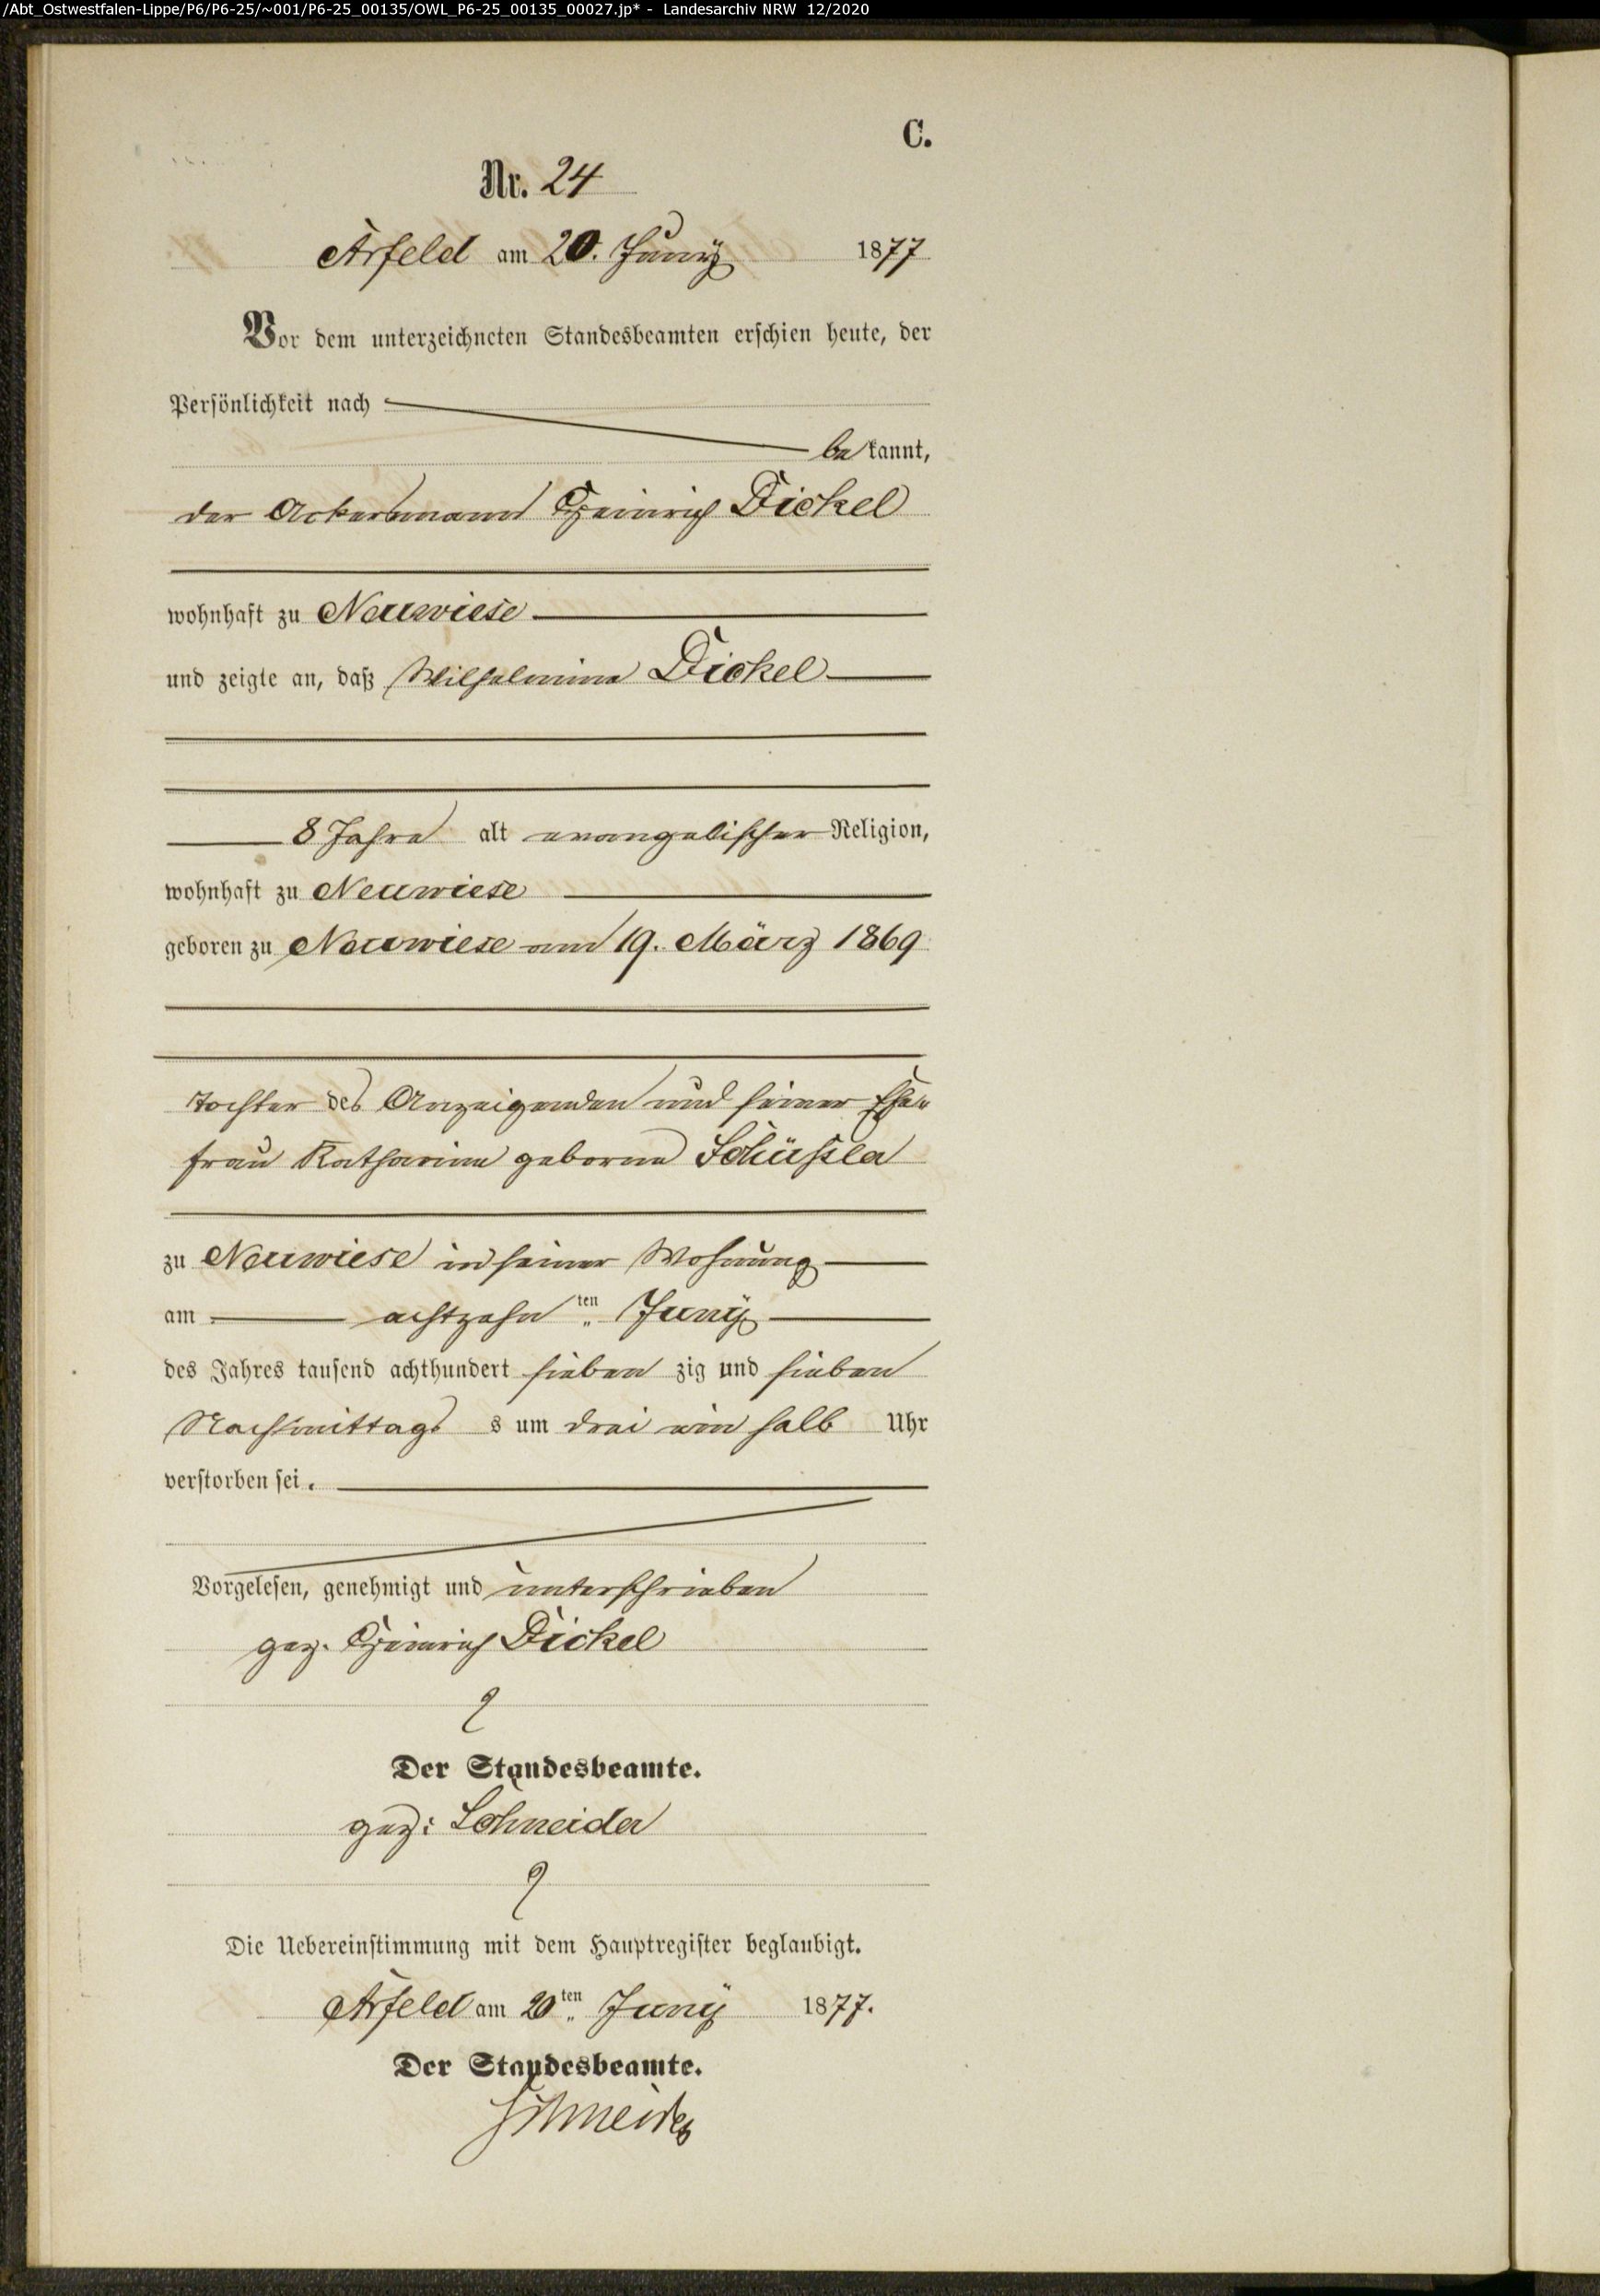 /Abt_Ostwestfalen-Lippe/P6/P6-25/~001/P6-25_00135/OWL_P6-25_00135_00027.jp* - Landesarchiv NRW 12/2020
C.
Nr. 24
Arfeld am 20. Juny 1877
Vor dem unterzeichneten Standesbeamten erschien heute, der
Persönlichkeit nach
bekannt,
der Ackersmann Heinrich Dickel
wohnhaft zu Neuwiese
und zeigte an, daß Wilhelmine Dickel
8 Jahre alt evangelischer Religion,
wohnhaft zu Neuwiese
geboren zu Neuwiese am 19. März 1869
Tochter des Anzeigenden und seiner Ehe-
frau Katharine geborne Schüßler
zu Neuwiese in seiner Wohnung
am achtzehn ten Juny
des Jahres tausend achthundert sieben zig und sieben
Nachmittags s um drei ein halb Uhr
verstorben sei.
Vorgelesen, genehmigt und unterschrieben
gez. Heinrich Dickel
Der Standesbeamte.
gez: Schneider
Die Uebereinstimmung mit dem Hauptregister beglaubigt.
Arfeld am 20ten Juny 1877.
Der Standesbeamte.
Schneider